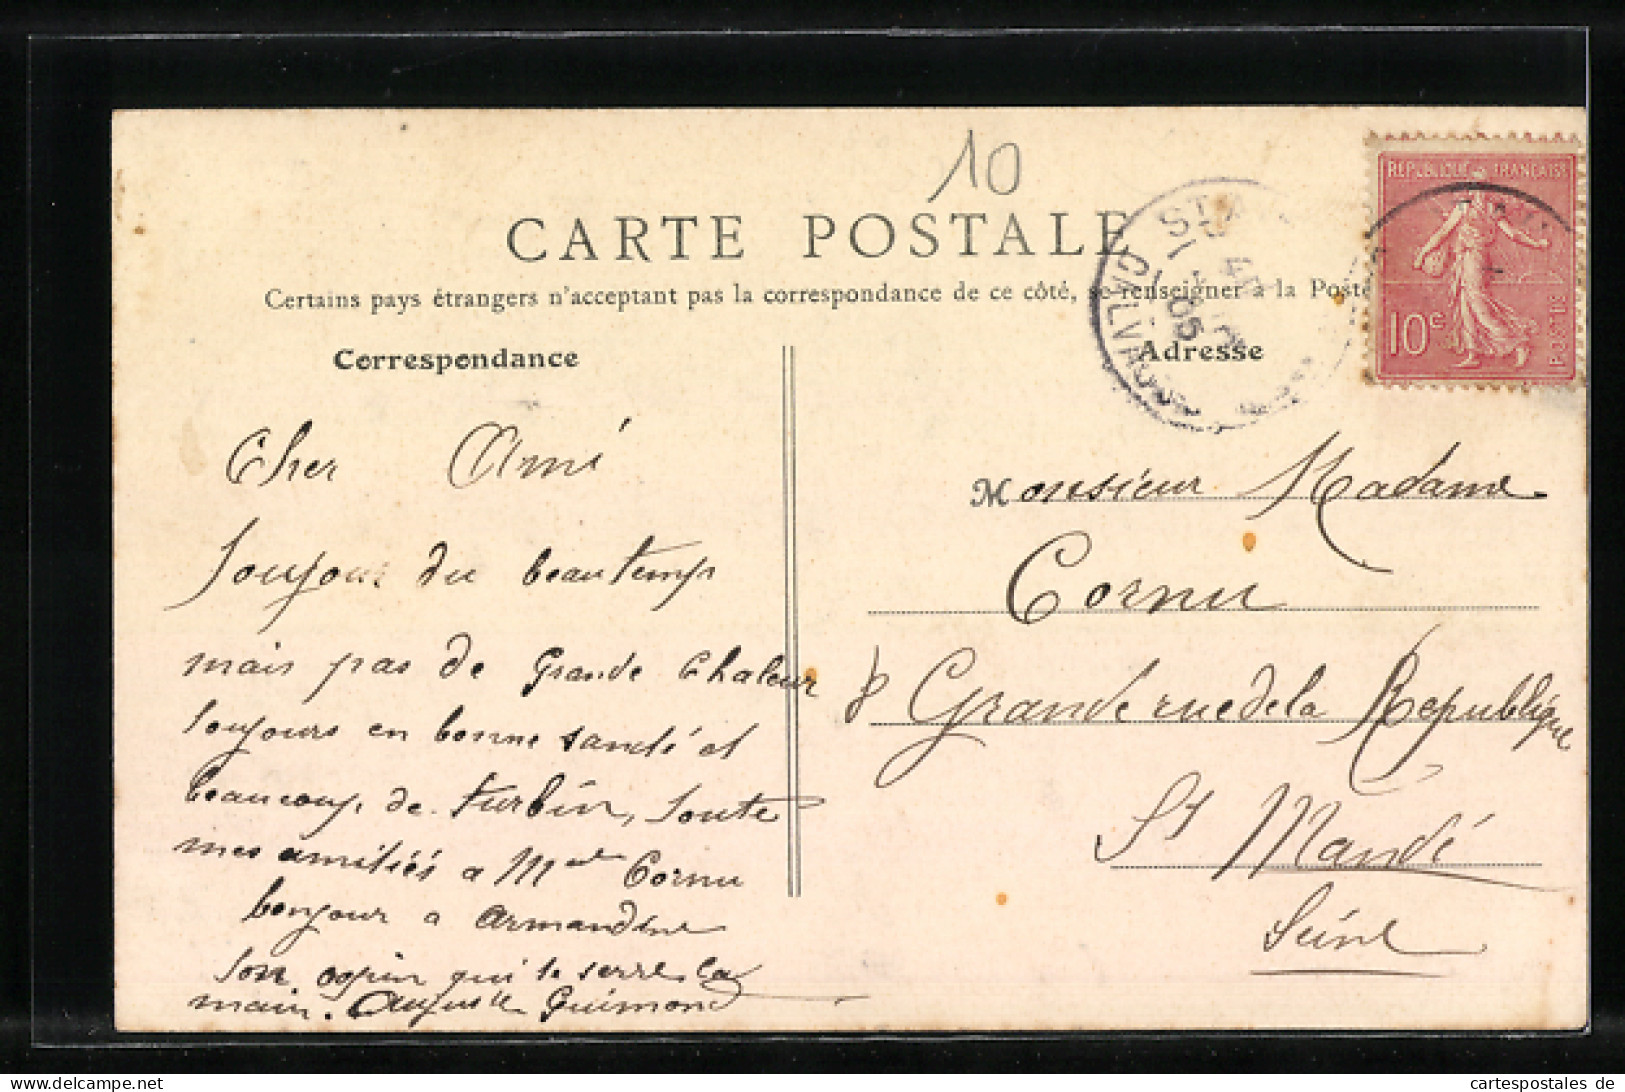 10
CARTE POSTALE
Certains pays étrangers n'acceptent pas la correspondance de ce côté, se renseigner à la Poste
Correspondance
Adresse
REPUBLIQUE FRANÇAISE
10c
POSTES
ST
05
CALVADOS
Cher Ami
Toujour du beau temps
mais pas de Grande Chaleur
toujours en bonne santé et
beaucoup de turbin, toute
mes amitiés a Mad Cornu
bonjour a Armandine
Ton copin qui te serre la
main. Auguste Guimond
Monsieur Madame
Cornu
Grande rue de la République
St Mandé
Seine
cartespostales de